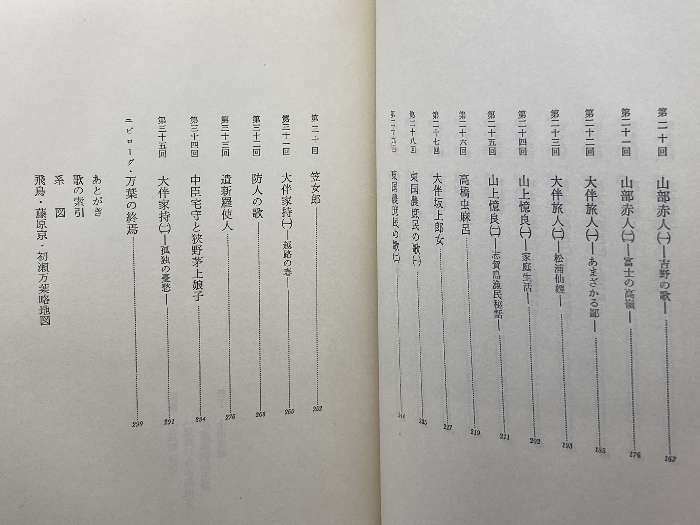 第二十回 山部赤人㈠―吉野の歌― 167
第二十一回 山部赤人㈡―富士の高嶺― 176
第二十二回 大伴旅人㈠―あまざかる鄙― 185
第二十三回 大伴旅人㈡―松浦仙媛― 193
第二十四回 山上憶良㈠―家庭生活― 202
第二十五回 山上憶良㈡―志賀島漁民秘話― 211
第二十六回 高橋虫麻呂 219
第二十七回 大伴坂上郎女 227
第二十八回 東国農庶民の歌㈠ 235
東国農庶民の歌㈡
笠女郎 252
第三十一回 大伴家持㈠―越路の春― 260
第三十二回 防人の歌 268
第三十三回 遣新羅使人 276
第三十四回 中臣宅守と狭野茅上娘子 284
第三十五回 大伴家持㈡―孤独の憂愁― 291
エピローグ・万葉の終焉 299
あとがき
歌の索引
系図
飛鳥・藤原京・初瀬万葉略地図